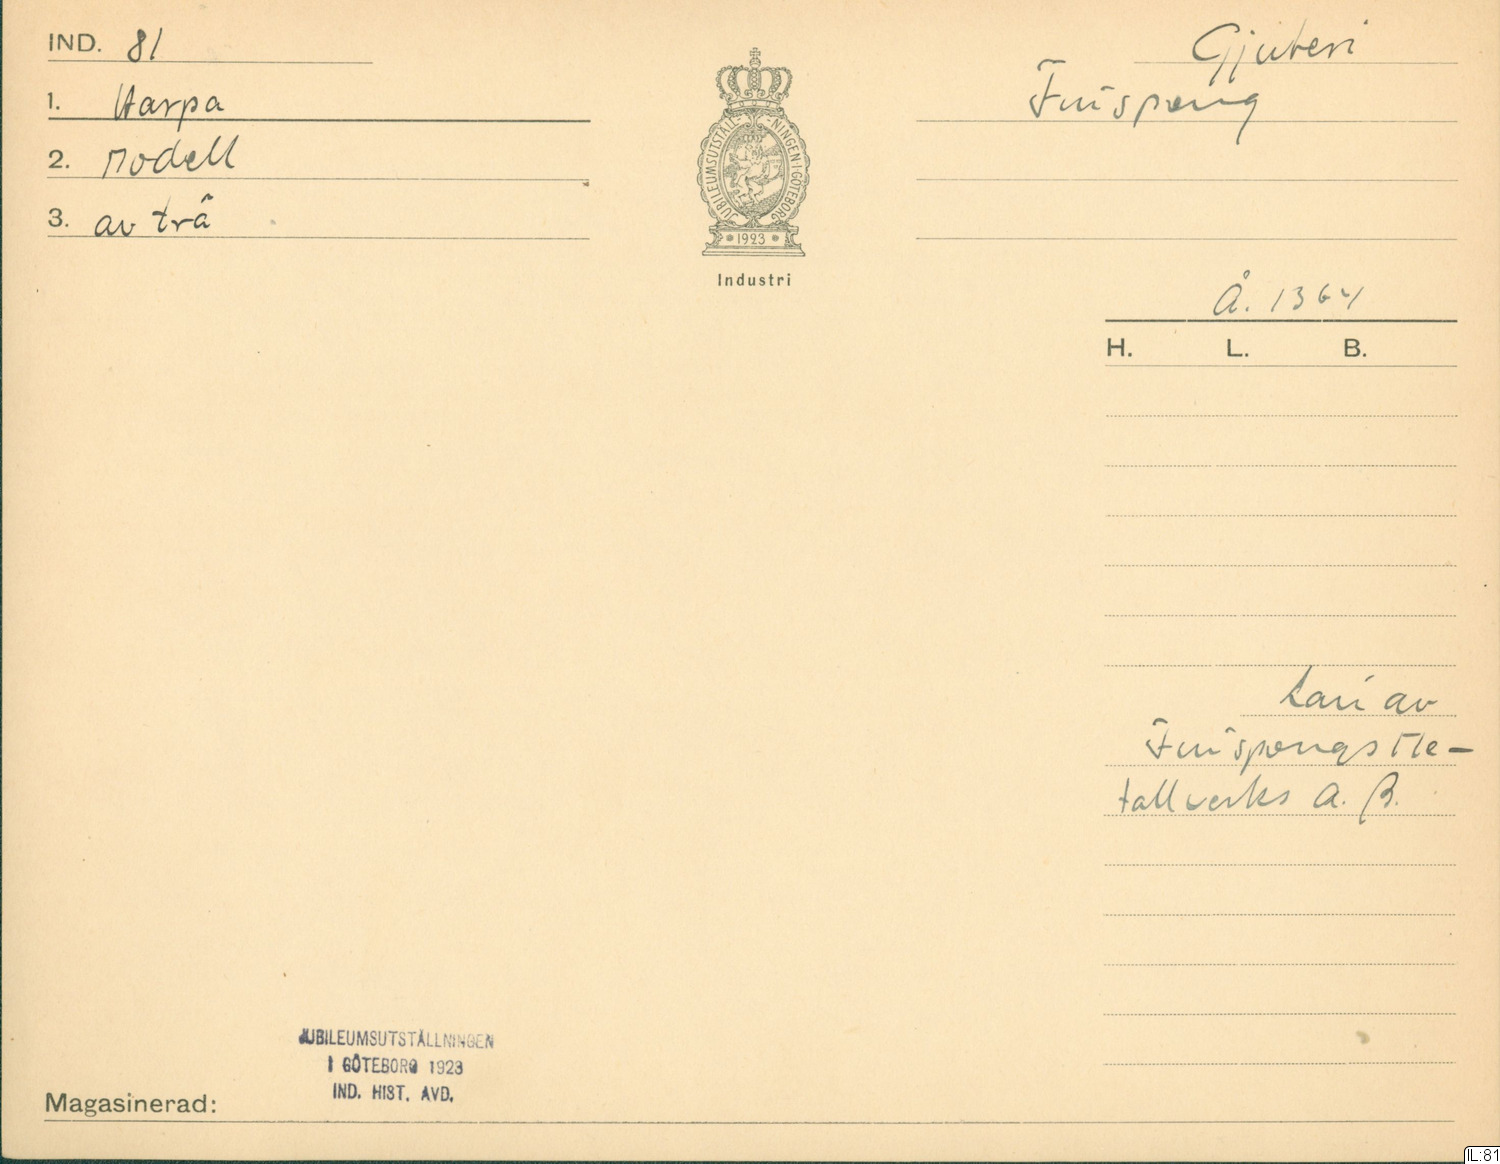 IND. 81
1. Harpa
2. Modell
3. av trä
JUBILEUMSUTSTÄLL-NINGEN·I·GÖTEBORG
1923
Industri
Gjuteri
Finspong
Å. 1364
H. L. B.
Lån av
Finspongs Me-
tallverks A. B.
JUBILEUMSUTSTÄLLNINGEN
I GÖTEBORG 1923
IND. HIST. AVD.
Magasinerad:
IL:81